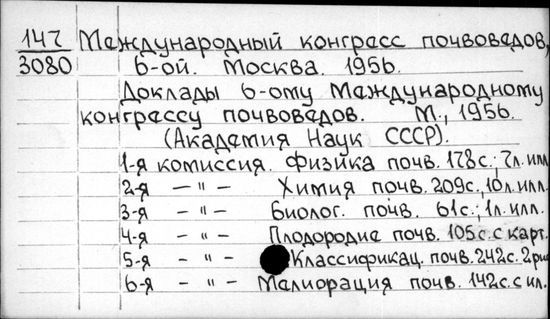 147 Международный конгресс почвоведов,
3080 6-ой. Москва. 1956.
Доклады 6-ому Международному
конгрессу почвоведов. М., 1956.
(Академия Наук СССР).
1-я комиссия. Физика почв. 178с.; 7л. илл.
2-я — " — Химия почв. 209с., 10л. илл.
3-я — " — Биолог. почв. 61с.; 1л. илл.
4-я — " — Плодородие почв. 105с. с карт.
5-я — " — Классификац. почв. 242с. 2рис
6-я — " — Мелиорация почв. 142с. с ил.